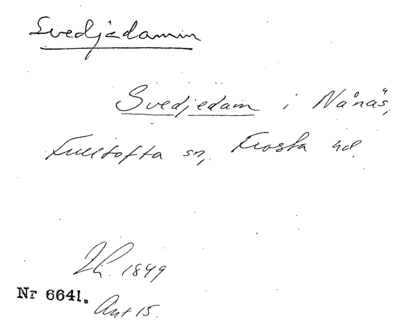 Svedjedamin
Svedjedam i Nånäs,
Fulltofta sn, Frosta hd.
1849
Nr 6641.
Ant 15.